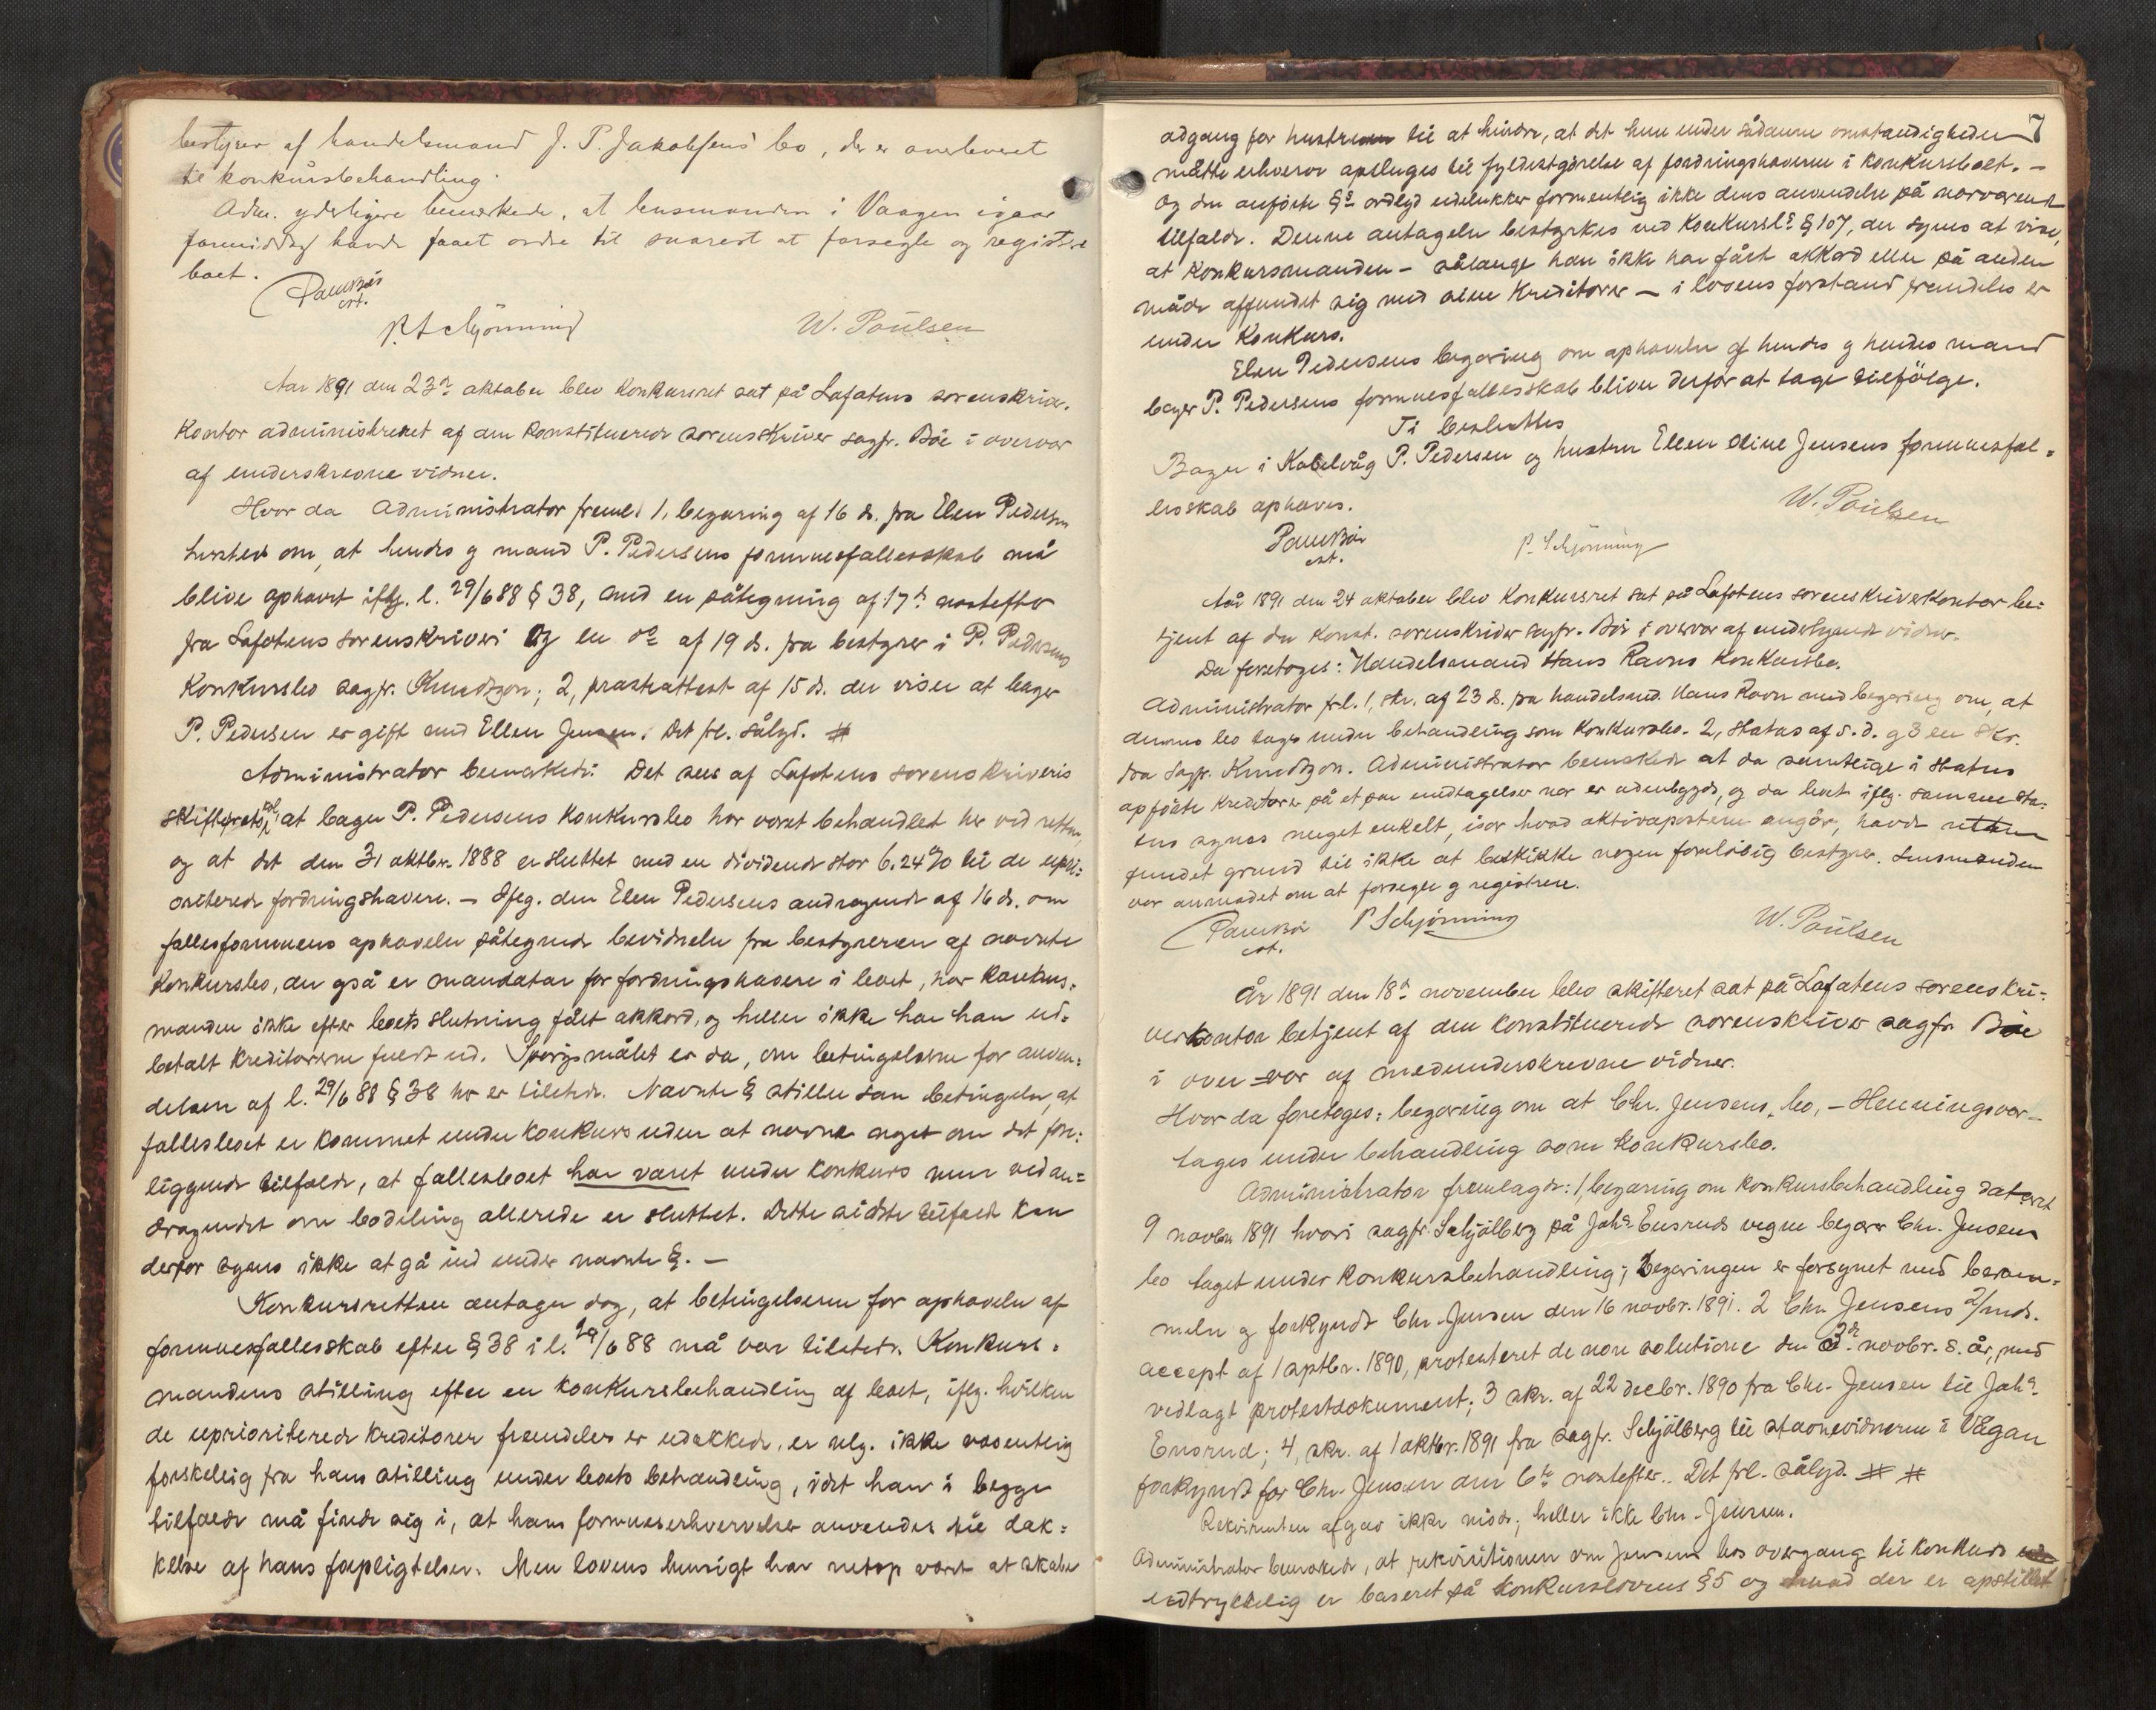 bestyrer af handelsmand J. P. Jakobsens bo, der er overleveret
til konkursbehandling.
Adm. yderligere bemerkede, at lensmanden i Vaagen igaar
formiddag havde faaet ordre til snarest at forsegle og registrere
boet.
cst.
P. Schjönning W. Poulsen
Aar 1891 den 23de oktober blev konkursret sat på Lofotens sorenskriv.
kontor administreret af den konstituerede sorenskriver sagfr. Böe i overvær
af underskrevne vidner.
Hvor da Administrator freml. 1, begæring af 16 ds. fra Elen Pedersen
om, at hendes og mand P. Pedersens formuesfællesskab må
blive ophævet iflg. l. 29/6 88 § 38, med en påtegning af 17de næstefter
fra Lofotens sorenskriveri og en do af 19 ds. fra bestyrer i P. Pedersens
konkursbo sagfr. Knudtzon; 2, præsteattest af 15 ds. der viser at bager
P. Pedersen er gift med Ellen Jensen. Det frl. sålyd. #
Administrator bemerkede: Det sees af Lofotens sorenskriveris
skifteretspl. at bager P. Pedersens konkursbo har været behandlet her ved retten,
og at det den 31 oktbr. 1888 er sluttet med en dividende stor 6.24 % til de upri=
oriterede fordringshavere. – Iflg. den Elen Pedersens andragende af 16 ds. om
fællesformuens ophævelse påtegnede bevidnelse fra bestyreren af nævnte
konkursbo, der også er mandatar for fordringshavere i boet, har konkurs=
manden ikke efter boets slutning fået akkord, og heller ikke har han ud=
betalt kreditorerne fuldt ud. Spørgsmålet er da, om betingelserne for anven=
delsen af l. 29/6 88 § 38 her er tilstede. Nævnte § stiller som betingelse, at
fællesboet er kommet under konkurs uden at nævne noget om det fore=
liggende tilfælde, at fællesboet har været under konkurs men ved an=
dragendet om bodeling allerede er sluttet. Dette sidste tilfælde kan
derfor synes ikke at gå ind under nævnte §. –
Konkursretten antager dog, at betingelserne for ophævelse af
formuesfællesskab efter § 38 i l. 29/6 88 må være tilstede. Konkurs=
mandens stilling efter en konkursbehandling af boet, iflg. hvilken
de uprioriterede kreditorer fremdeles er udækkede, er nlg. ikke væsentlig
forskellig fra hans stilling under boets behandling, idet han i begge
tilfælde må finde sig i, at hans formueserhvervelser anvendes til dæk=
kelse af hans forpligtelser. Men lovens hensigt har netop været at skabe
7
adgang for hustruen til at hindre, at det hun under sådanne omstændigheder
måtte erhverve opsluges til fyldestgörelse af fordringshaverne i konkursboet. –
Og den anførte §s ordlyd udelukker formentlig ikke dens anvendelse på nærværende
tilfælde. Denne antagelse bestyrkes ved Konkursl.s § 107, der synes at vise,
at konkursmanden – sålænge han ikke har fået akkord eller på anden
måde affundet sig med sine kreditorer – i lovens forstand fremdeles er
under konkurs.
Elen Pedersens begæring om ophævelse af hendes og hendes mand
bager P. Pedersens formuesfællesskab bliver derfor at tage tilfölge.
Ti besluttes
Bager i Kabelvåg P. Pedersen og hustru Ellen Oline Jensens formuesfæl=
lesskab ophæves.
W. Poulsen
cst. P. Schjönning
Aår 1891 den 24 oktober blev konkursret sat på Lofotens sorenskriverkontor be=
tjent af den konst. sorenskriver sagfr. Böe i overvær af undertegnede vidner.
Da foretoges: Handelsmand Hans Ravns konkursbo.
Administrator frl. 1, skr. af 23 ds. fra handelsmd. Hans Ravn med begæring om, at
dennes bo tages under behandling som konkursbo. 2, Status af s. d. og 3 en skr.
fra sagfr. Knudtzon. Administrator bemerkede at da samtlige i status
opførte kreditorer på et par undtagelser nær er udenbygds, og da boet iflg. samme sta=
tus synes meget enkelt, især hvad aktivaposterne angår, havde retten
fundet grund til ikke at beskikke nogen forelöbig bestyrer. Lensmanden
var anmodet om at forsegle og registrere.
cst. P Schjönning W. Poulsen
År 1891 den 18de november blev skifteret sat på Lofotens sorenskri=
verkontor betjent af den konstituerede sorenskriver sagfr. Böe
i overvær af medunderskrevne vidner.
Hvor da foretoges: begæring om at Chr. Jensens bo, – Henningsvær –
tages under behandling som konkursbo.
Administrator fremlagde: 1, begæring om konkursbehandling dateret
9 novbr. 1891 hvori sagfr. Schjölberg på Johs. Ensruds vegne begær Chr. Jensens
bo taget under konkursbehandling; begæringen er forsynet med beram=
melse og forkyndt Chr. Jensen den 16 novbr. 1891. 2 Chr. Jensens 2/mds.
accept af 1 septbr. 1890, protesteret de non solutione den 3de novbr. s. år, med
vedlagt protestdokument; 3 skr. af 22 decbr. 1890 fra Chr. Jensen til Johs.
Ensrud; 4, skr. af 1 oktbr. 1891 fra sagfr. Schjölberg til stævnevidnerne i Vågan
forkyndt for Chr. Jensen den 6te næstefter. Det frl. sålyd. # #
Rekvirenten afgav ikke möde; heller ikke Chr. Jensen.
Administrator bemerkede, at rekvisitionen om Jensens bos overgang til konkurs
udtrykkelig er baseret på konkurslovens § 5 og hvad der er opstillet